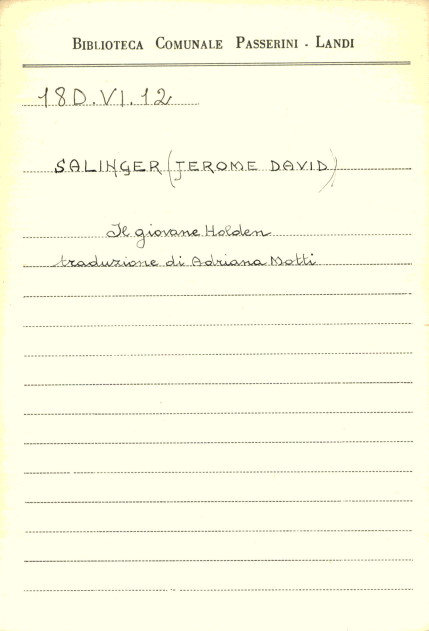 BIBLIOTECA COMUNALE PASSERINI - LANDI
18D.VI.12
SALINGER (JEROME DAVID)
Il giovane Holden
traduzione di Adriana Motti